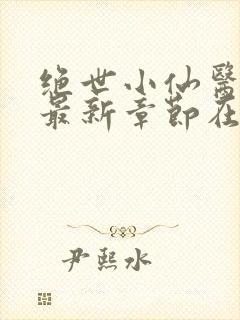 绝世小仙医
最新章节在
尹熙水